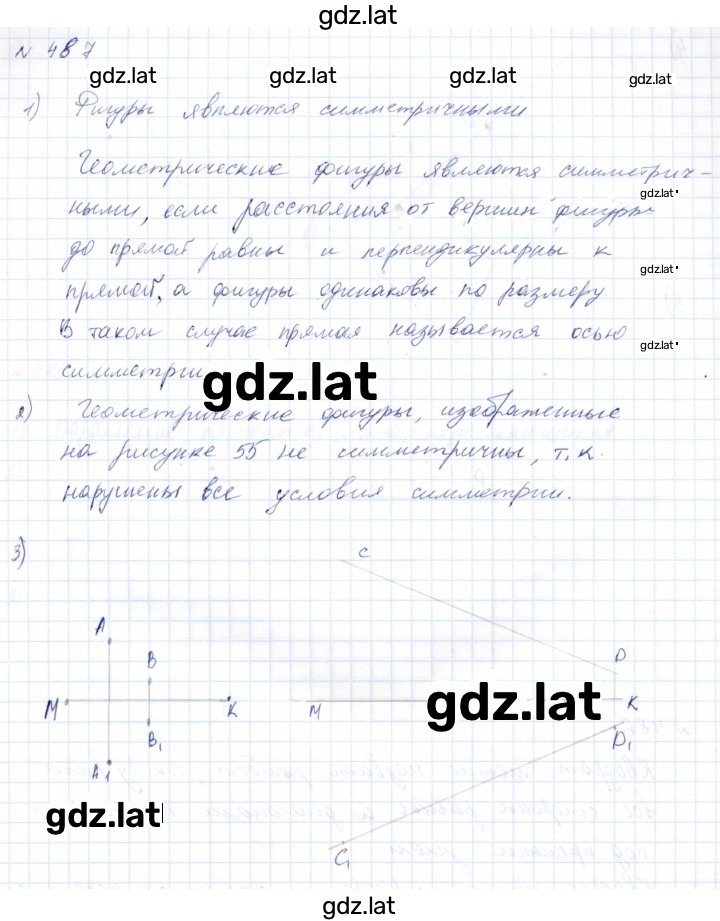 gdz.lat
N 487
gdz.lat gdz.lat gdz.lat gdz.lat
1) Фигуры являются симметричными
Геометрические фигуры являются симметрич-
gdz.lat
ными, если расстояния от вершин фигуры
до прямой равны и перпендикулярны к
gdz.lat
прямой, а фигуры одинаковы по размеру
В таком случае прямая называется осью
gdz.lat
симметрии
gdz.lat
2) Геометрические фигуры, изображенные
на рисунке 55 не симметричны, т.к.
нарушены все условия симметрии.
3)
C
A
B
D
M K M K
gdz.lat
B1 D1
A1
gdz.lat
C1
gdz.lat